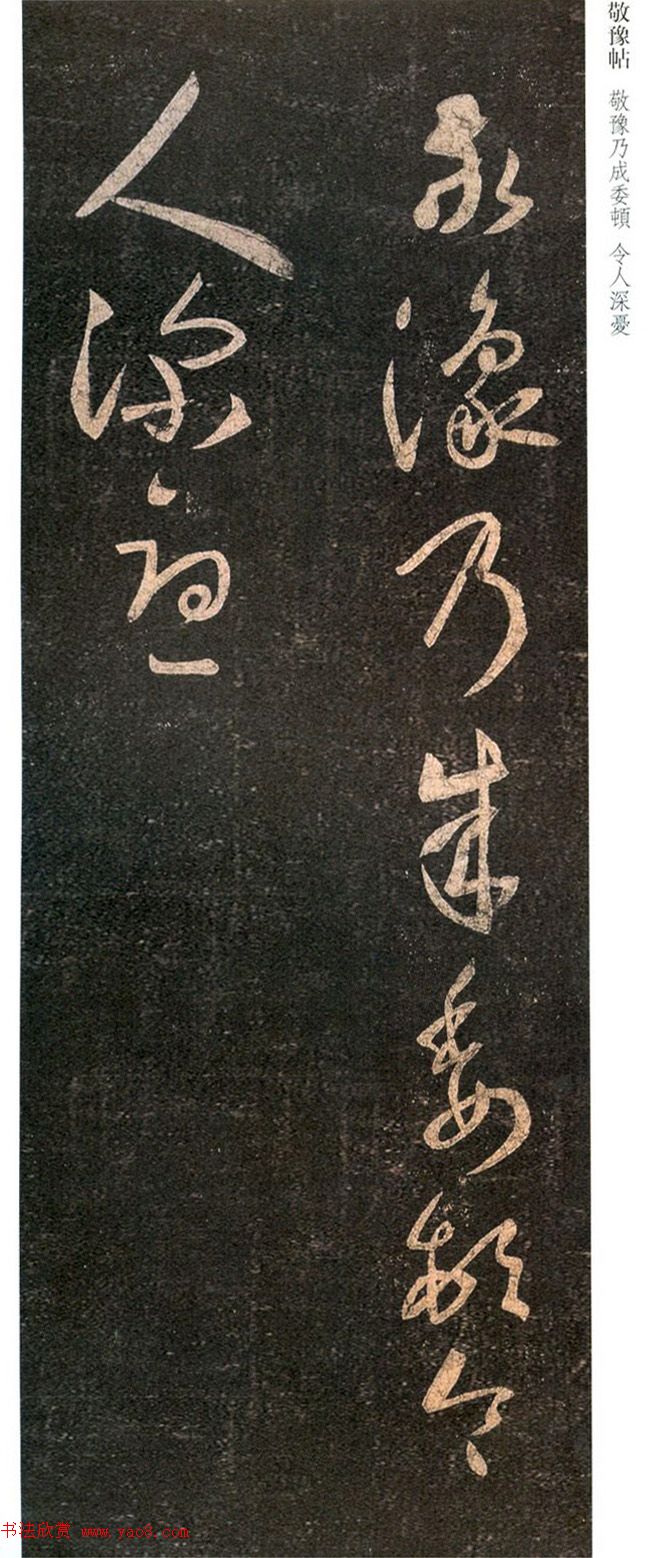 敬豫帖 敬豫乃成委頓 令人深憂
敬豫乃成委頓令
人深憂
书法欣赏 www.yac8.com